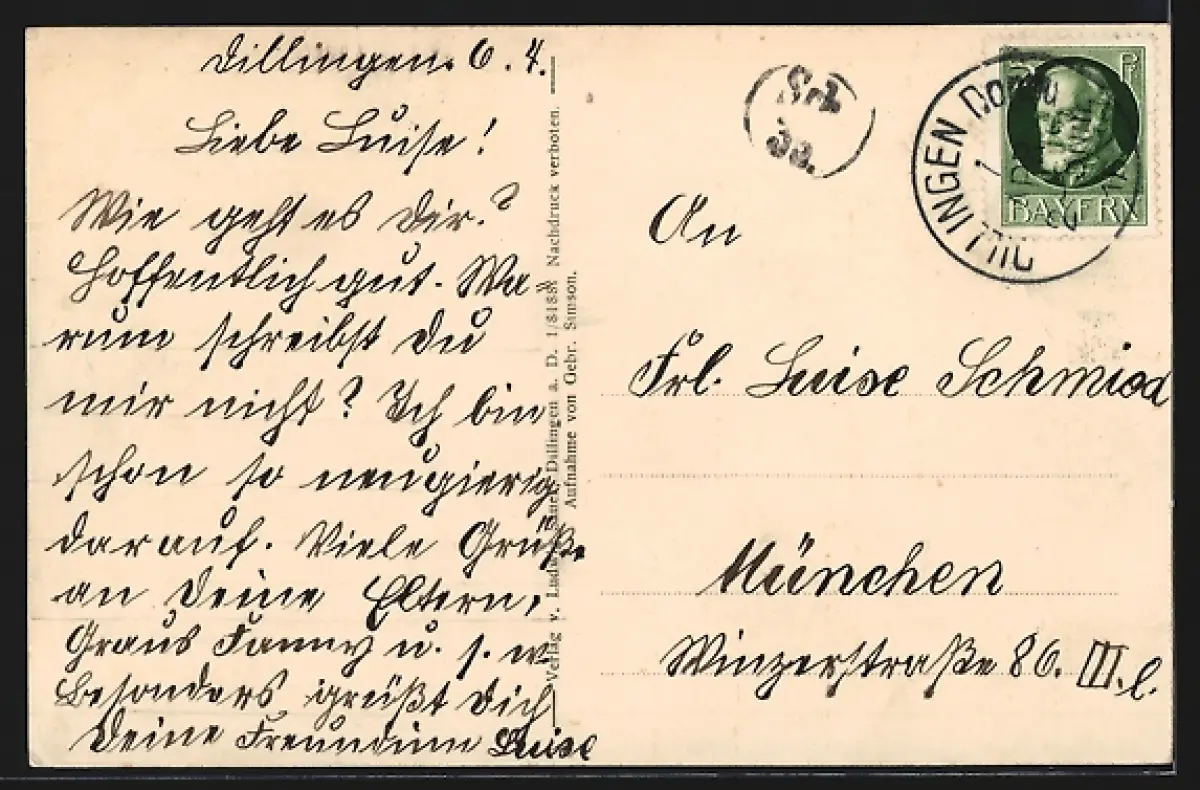 Dillingen. 6. 4.
Liebe Luise!
Wie geht es Dir?
Hoffentlich gut. Wa-
rum schreibst Du
mir nicht? Ich bin
schon so neugierig
darauf. Viele Grüße
an Deine Eltern,
Graus Fanny u. s. w.
Besonders grüßt Dich
Deine Freundinn Luise
Verlag v. Dillingen a. D. 1/8188. Nachdruck verboten.
Aufnahme von Gebr. Simson.
DILLINGEN DONAU
BAYERN
An
Frl. Luise Schmied
München
Winzerstraße 86. III. l.